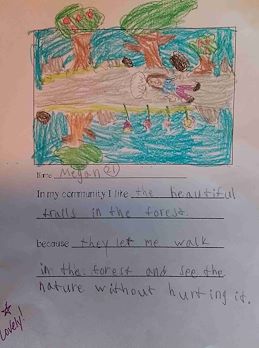 Name Megan
In my community I like the beautiful
trails in the forest.
because they let me walk
in the forest and see the
nature without hurting it.
Lovely!